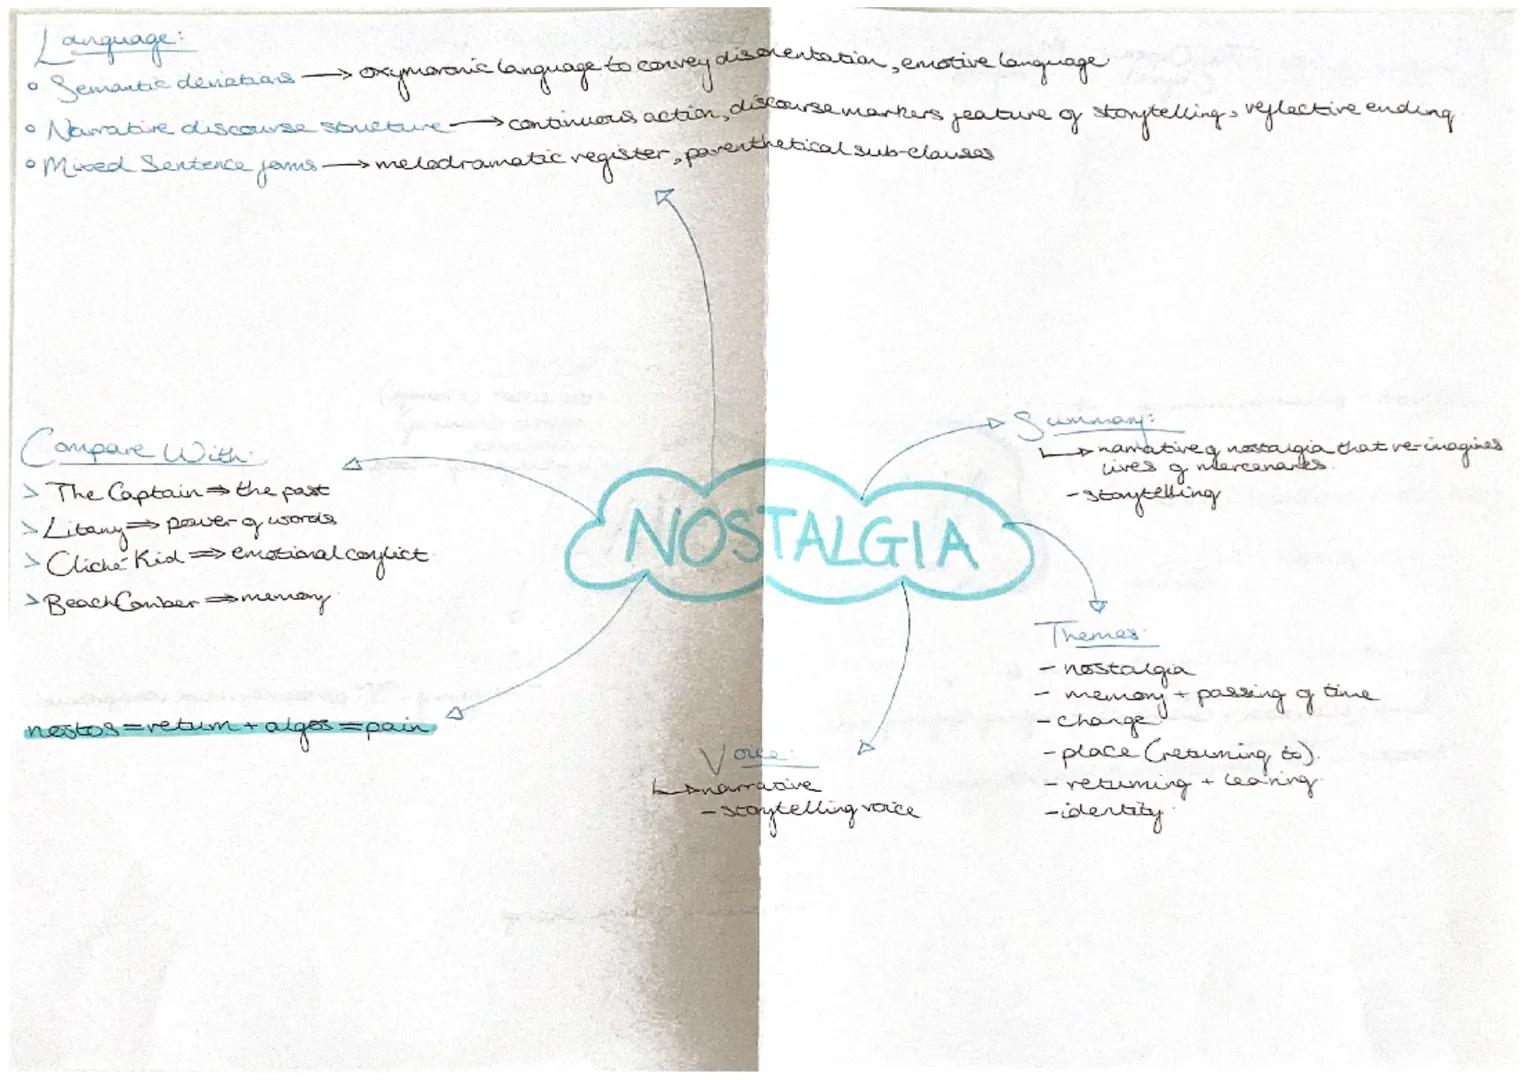 Language:
Semantic deviations → oxymoronic language to convey disorientation, emotive language
Narrative discourse structure → continuous action, discourse markers feature of storytelling, reflective ending
Mixed Sentence forms → melodramatic register, parenthetical sub-clauses
Compare With:
> The Captain ⇒ the past
> Litany ⇒ power of words
> Cliché Kid ⇒ emotional conflict
> BeachComber ⇒ memory
nostos = return + algos = pain
NOSTALGIA
Summary:
↳ narrative of nostalgia that re-imagines
lives of mercenaries.
- storytelling
Themes:
- nostalgia
- memory + passing of time
- change
- place (returning to).
- returning + leaving
- identity
Voice:
↳ narrative
- storytelling voice